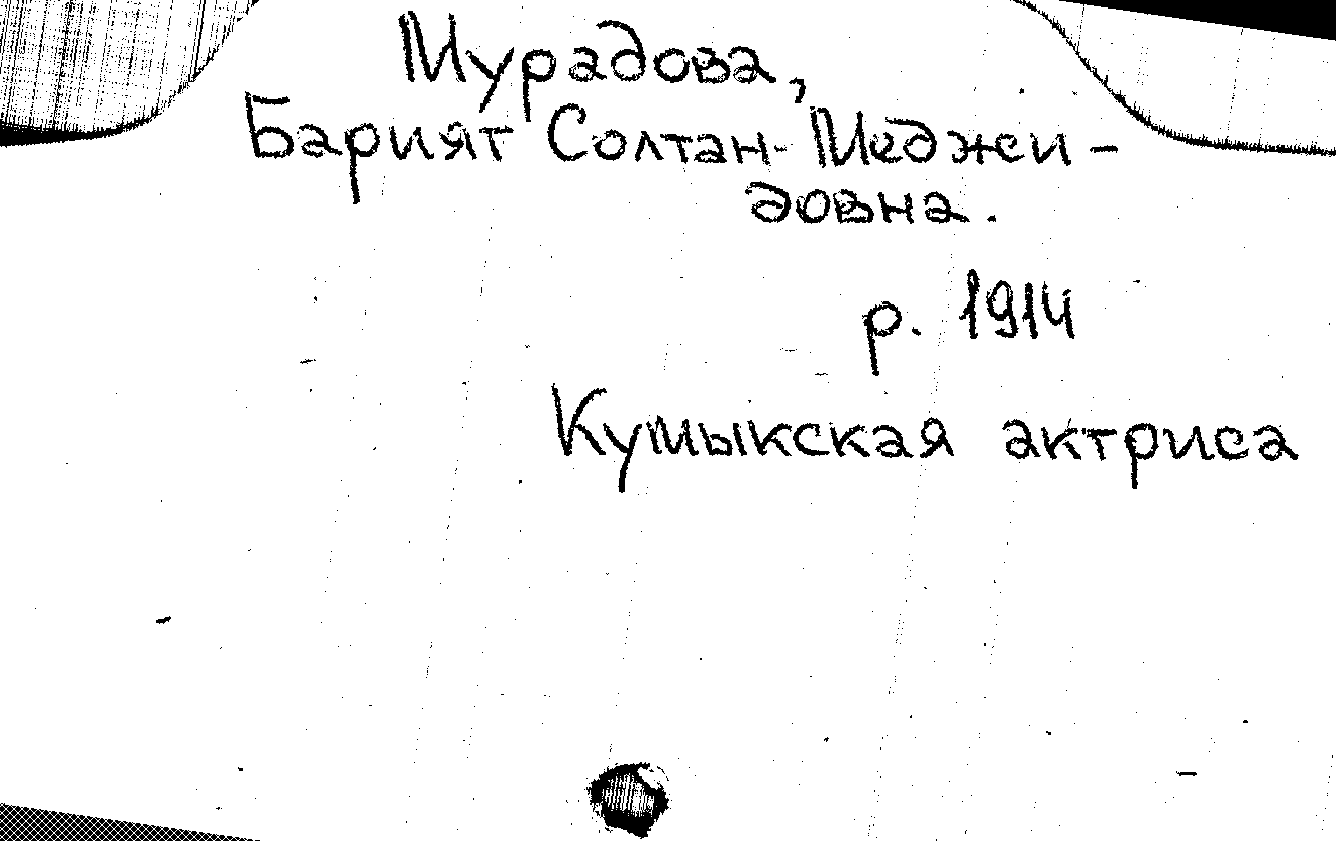 Мурадова,
Барият Солтан-Меджи-
довна.
р. 1914
Кумыкская актриса